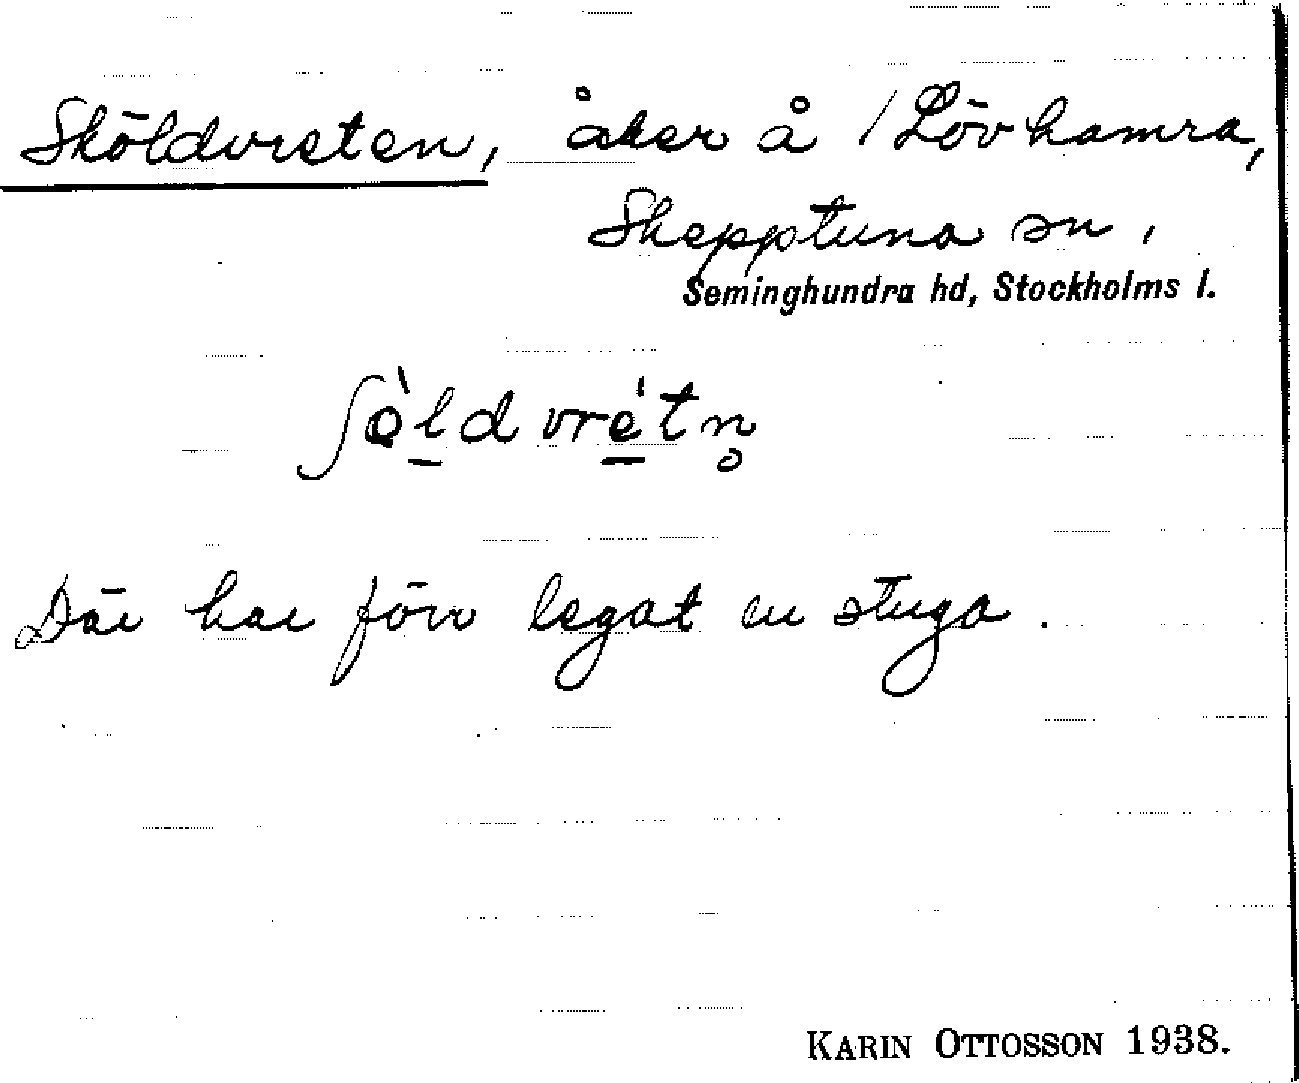 Sköldvreten, åker å /Lövhamra,
Skepptuna sn,
Seminghundra hd, Stockholms l.
ʃɵ̀l̠dvré̠tn̥
Där har förr legat en stuga.
KARIN OTTOSSON 1938.